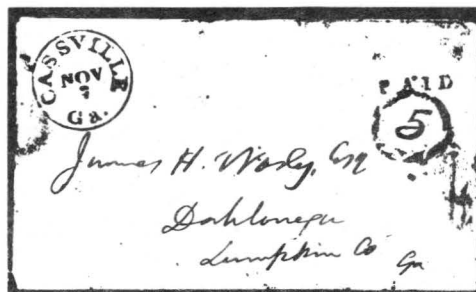 CASSVILLE
NOV
Ga.
PAID
5
James H. Esq
Dahlonega
Lumpkin Co
Ga